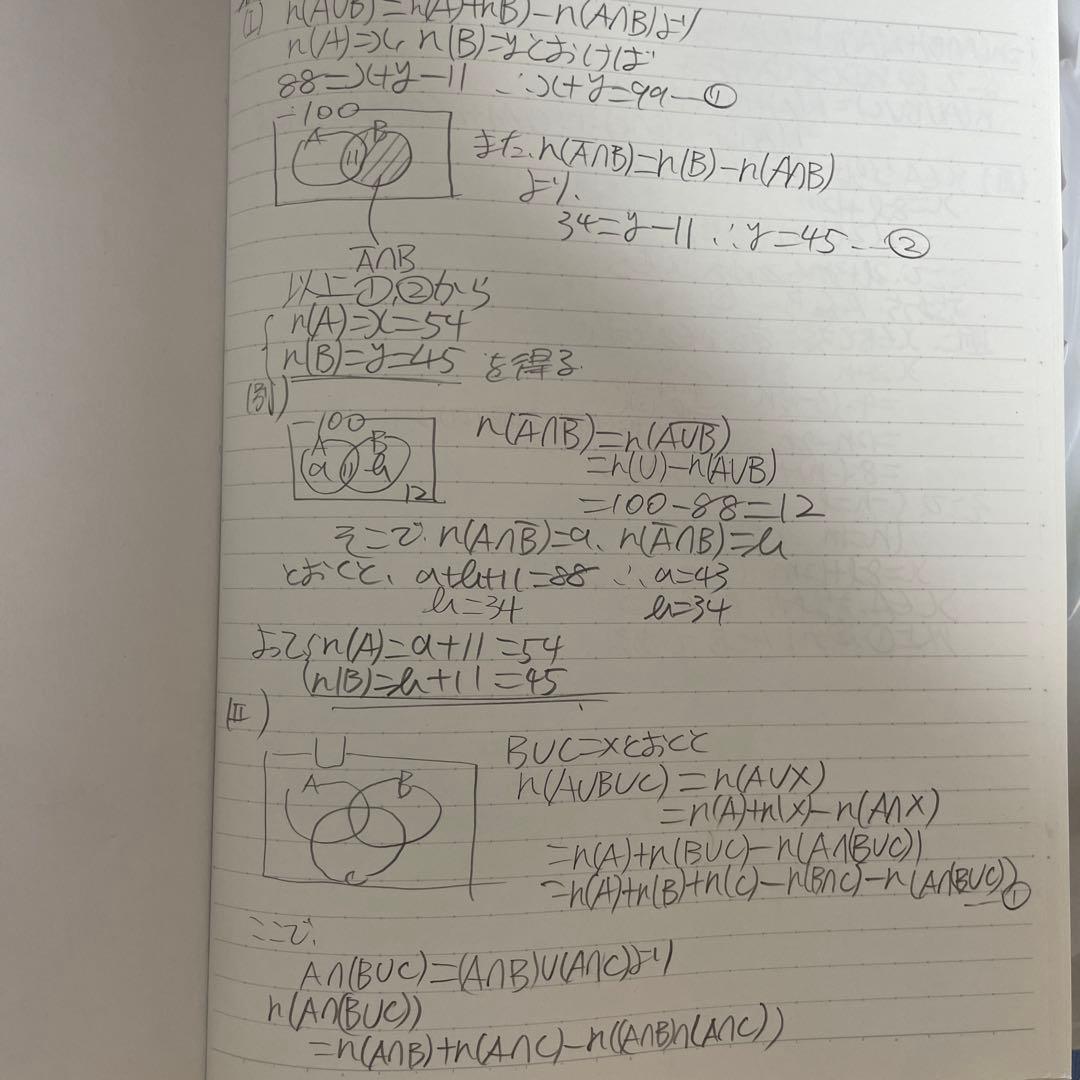 (I) n(A∪B)=n(A)+n(B)-n(A∩B)より
n(A)=x, n(B)=yとおけば
88=x+y-11 ∴x+y=99-①
100
A B
11
また、n(A̅∩B)=n(B)-n(A∩B)
より、
34=y-11 ∴y=45-②
A̅∩B
以上①,②から
n(A)=x=54
n(B)=y=45 を得る
(別)
100
A B
a 11 b
12
n(A̅∩B̅)=n(A̅∪̅B̅)
=n(U)-n(A∪B)
=100-88=12
そこで、n(A∩B̅)=a、n(A̅∩B)=b
とおくと、a+b+11=88 ∴a=43
b=34 b=34
よって n(A)=a+11=54
n(B)=b+11=45
(II)
U
A B
C
B∪C=Xとおくと
n(A∪B∪C)=n(A∪X)
=n(A)+n(X)-n(A∩X)
=n(A)+n(B∪C)-n(A∩(B∪C))
=n(A)+n(B)+n(C)-n(B∩C)-n(A∩(B∪C))-①
ここで、
A∩(B∪C)=(A∩B)∪(A∩C)より
n(A∩(B∪C))
=n(A∩B)+n(A∩C)-n((A∩B)∩(A∩C))